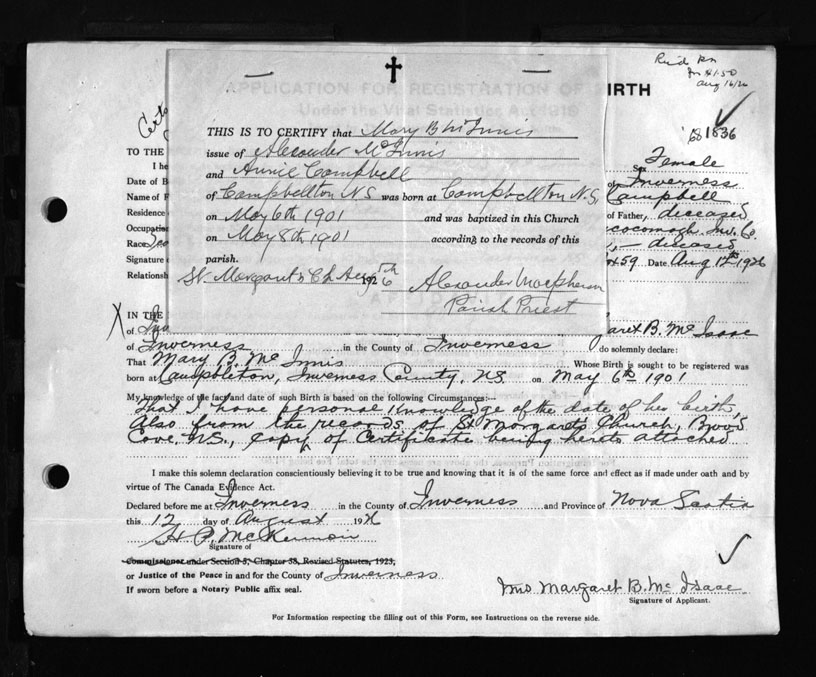 Aug 16/26
APPLICATION FOR REGISTRATION OF BIRTH
Under the Vital Statistics Act 1919
1836
THIS IS TO CERTIFY that Mary B McInnis
issue of Alexander McInnis
and Annie Campbell
of Campbellton NS was born at Campbellton N.S.
on May 6th 1901 and was baptized in this Church
on May 8th 1901 according to the records of this
parish.
St. Margaret's Ch Aug 5th 1926 Alexander Macpherson
Parish Priest
TO THE
I he
Date of B
Name of F
Residence
Occupation
Race
Signature
Relationsh
Female
of Inverness
Campbell
of Father, deceased
deceased
459. Date Aug 12th 1926
IN THE
of
garet B. Mc Isaac
of Inverness in the County of Inverness do solemnly declare:
That Mary B. Mc Innis Whose Birth is sought to be registered was
born at Campbleton, Inverness County, N.S. on May 6th 1901
My knowledge of the fact and date of such Birth is based on the following Circumstances:—
That I have personal knowledge of the date of her birth,
Also from the records of St Margarets Church, Broad
Cove N.S., Copy of Certificate being hereto attached
I make this solemn declaration conscientiously believing it to be true and knowing that it is of the same force and effect as if made under oath and by
virtue of The Canada Evidence Act.
Declared before me at Inverness in the County of Inverness and Province of Nova Scotia
this 12 day of August 1926
Signature of
Commissioner under Section 5, Chapter 38, Revised Statutes, 1923,
or Justice of the Peace in and for the County of Inverness
If sworn before a Notary Public affix seal.
Mrs Margaret B. Mc Isaac
Signature of Applicant.
For Information respecting the filling out of this Form, see Instructions on the reverse side.